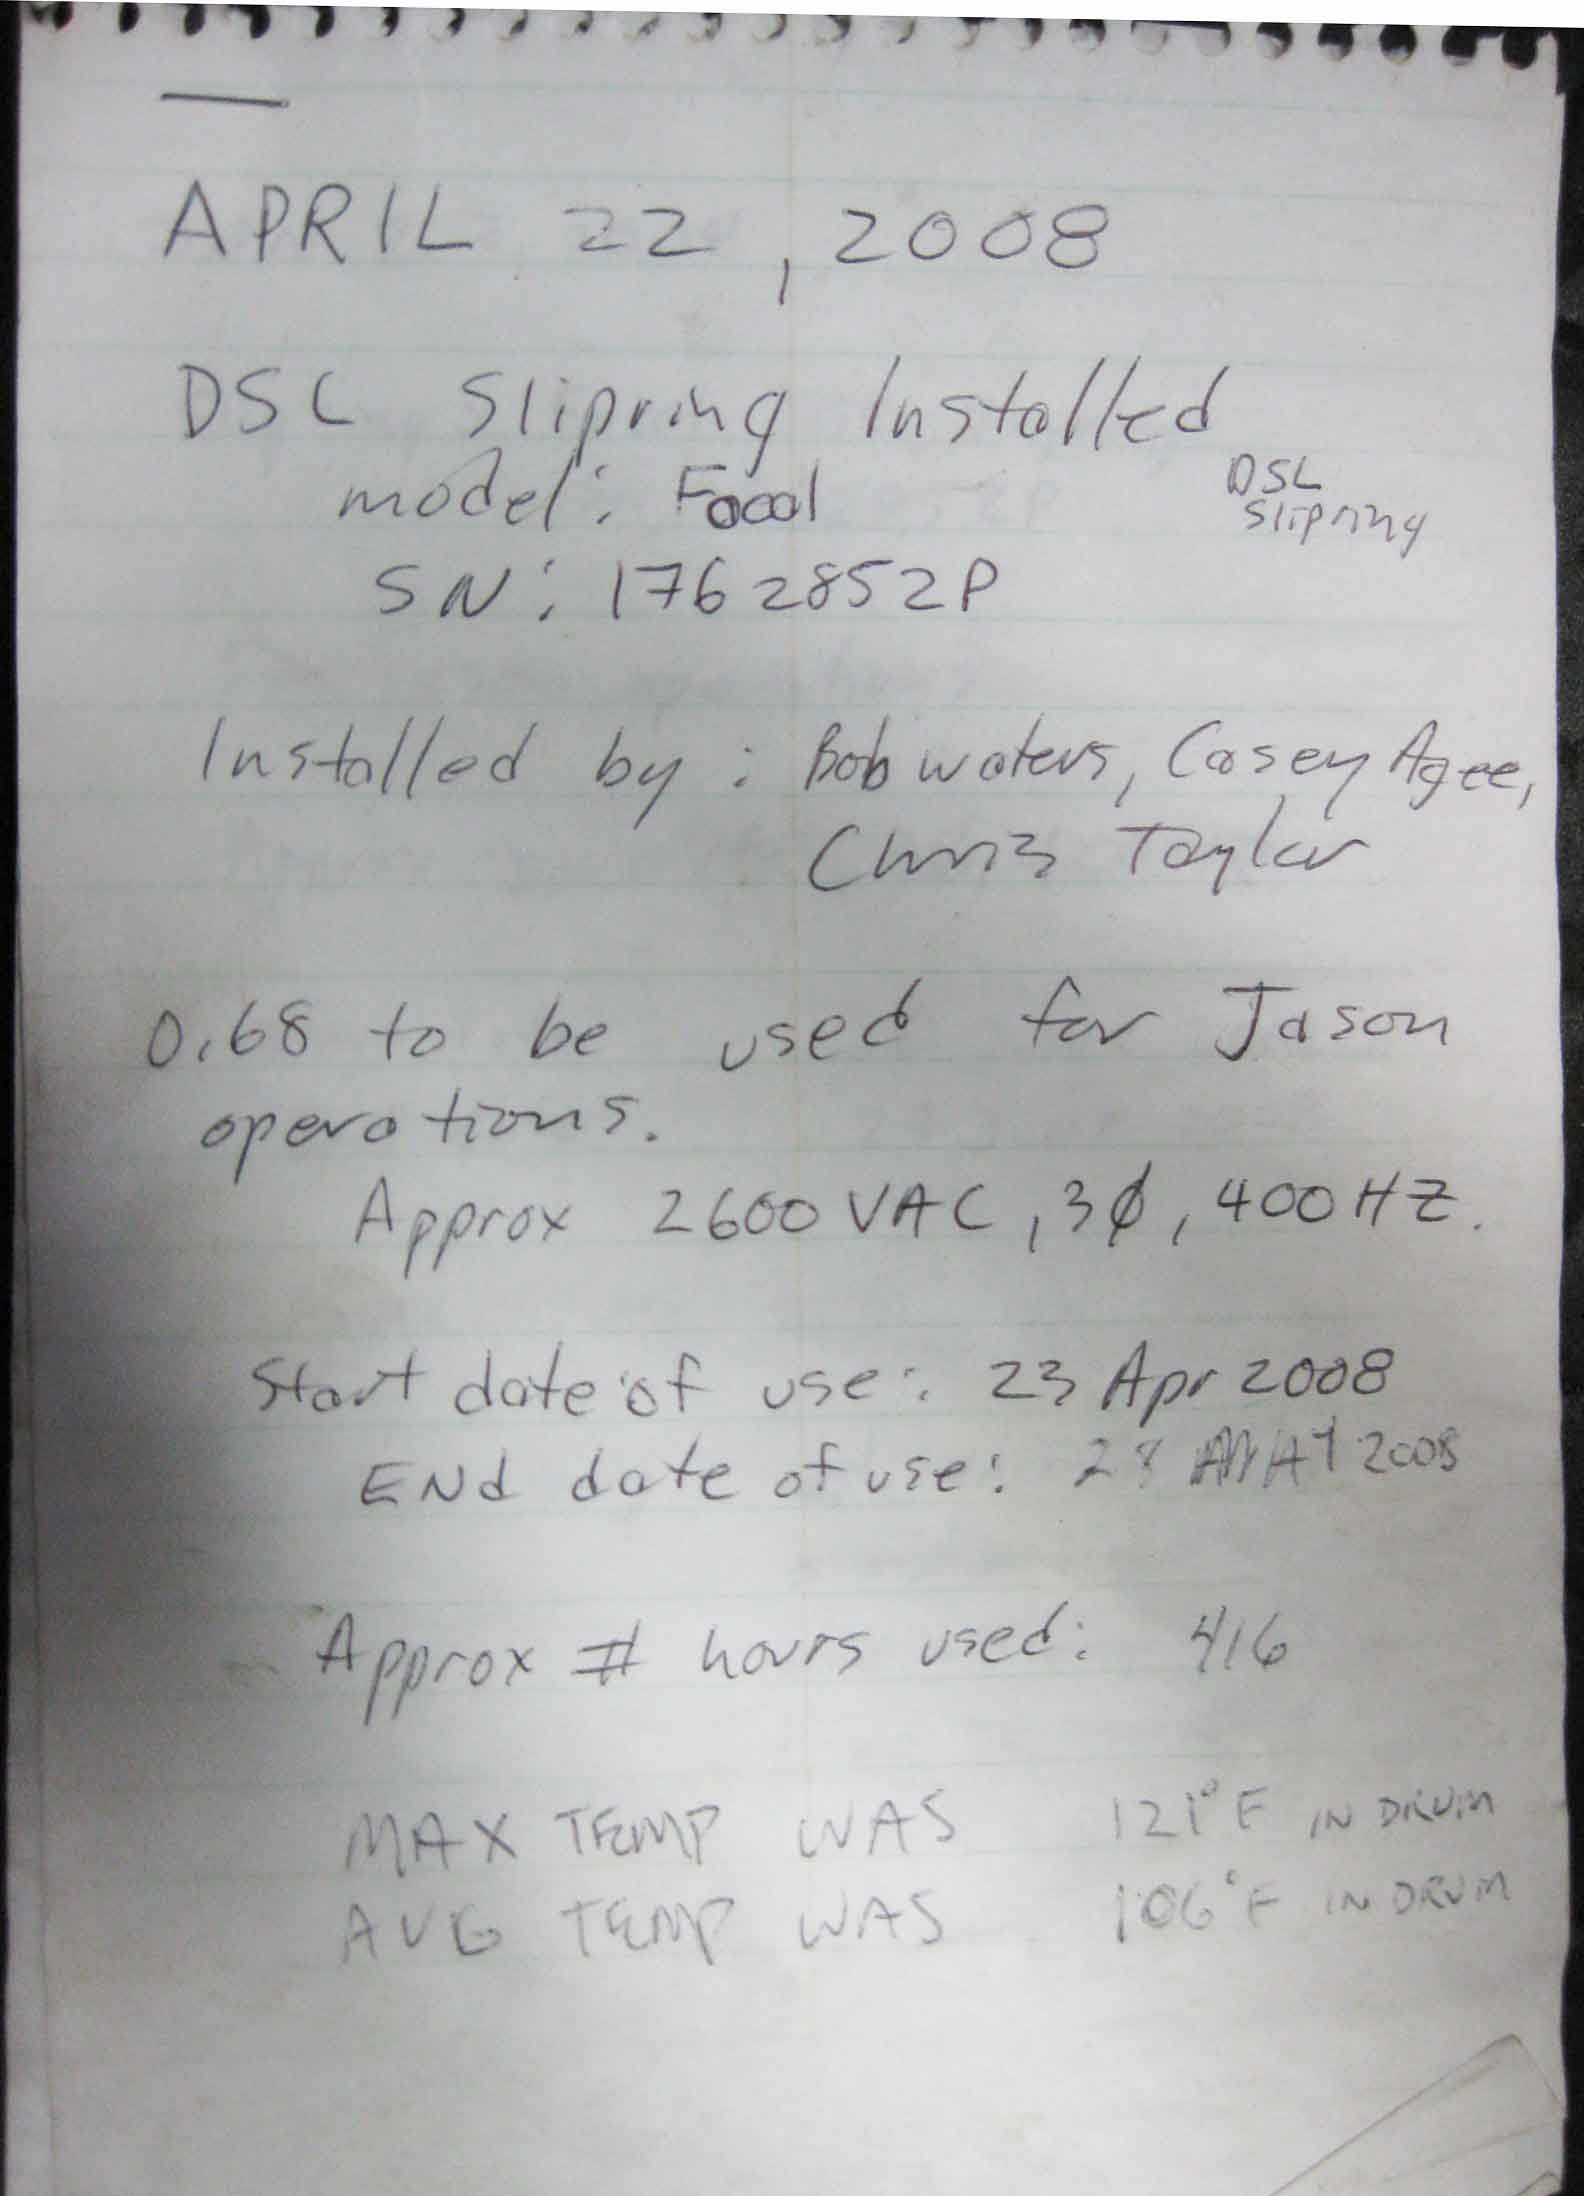 APRIL 22, 2008
DSL Slipring Installed
model: Focal
DSL
Slipring
SN: 1762852P
Installed by: Bob waters, Casey Agee,
Chris Taylor
0.68 to be used for Jason
operations.
Approx 2600 VAC, 3ϕ, 400HZ.
Start date of use: 23 Apr 2008
ENd date of use: 28 MAY 2008
Approx # hours used: 416
MAX TEMP WAS 121°F IN DRUM
AVG TEMP WAS 106°F IN DRUM